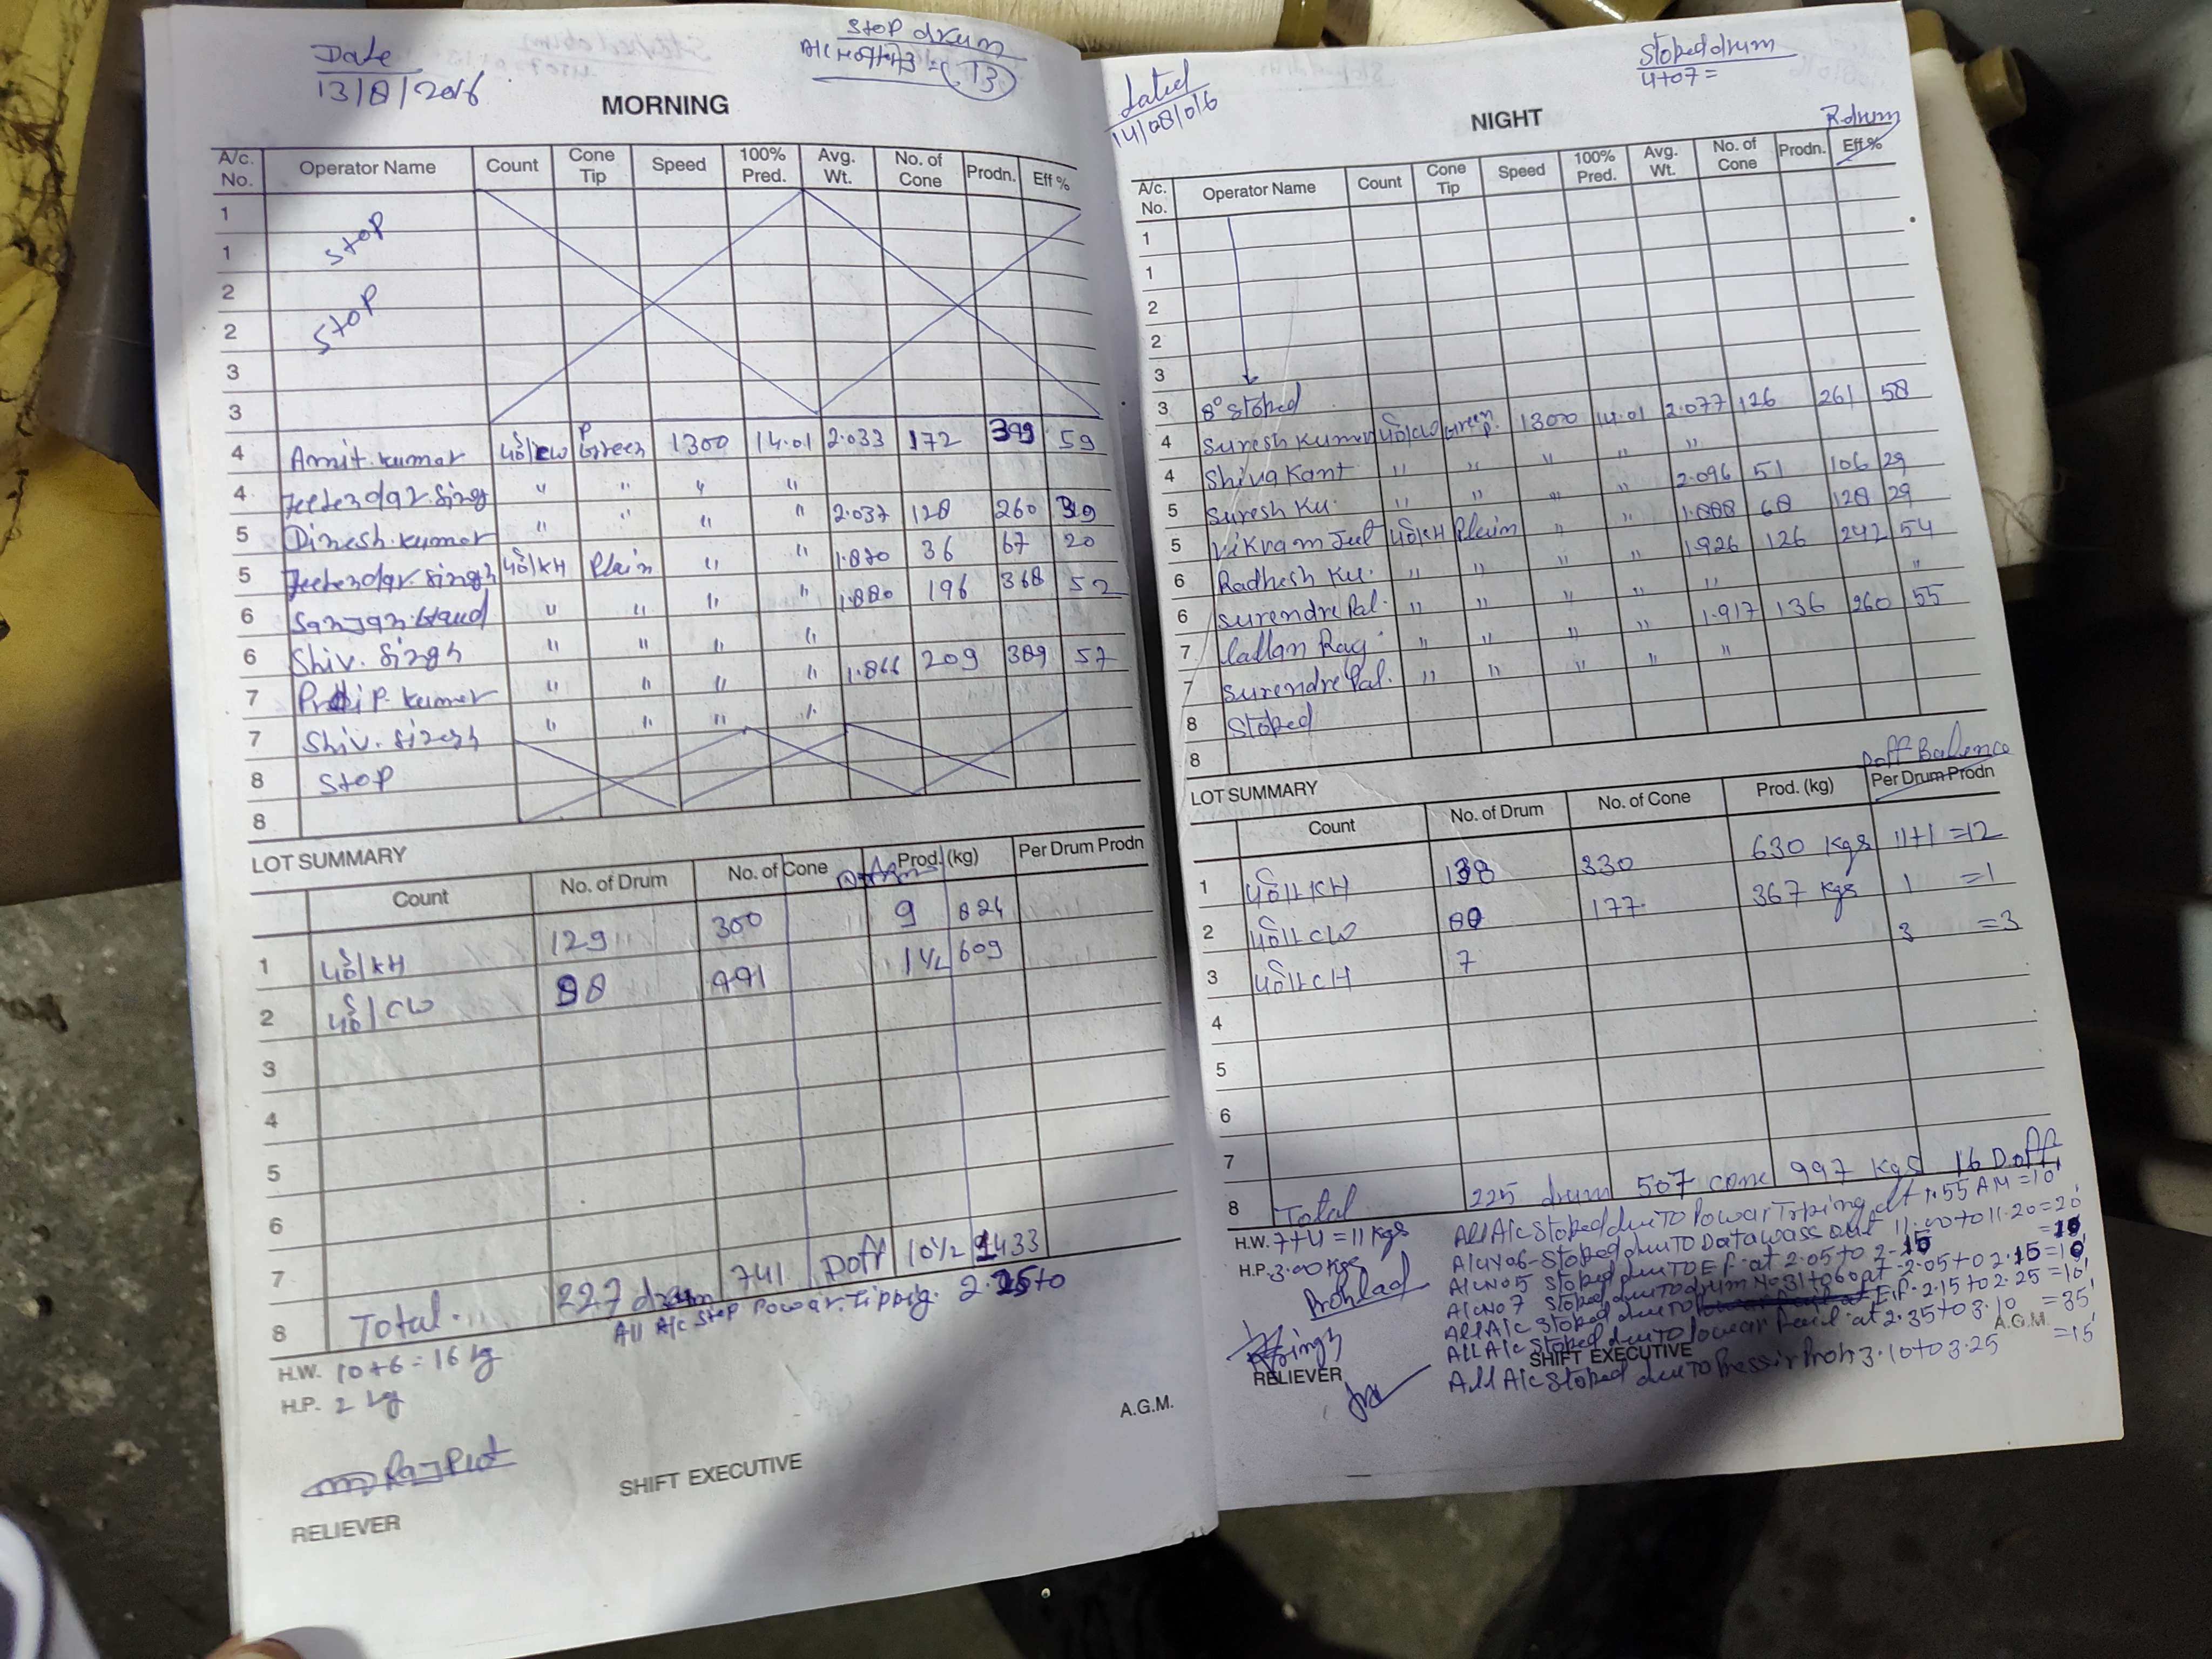 Date
13/8/2016
Stop drum
= 13
MORNING
A/c. No. Operator Name Count Cone Tip Speed 100% Pred. Avg. Wt. No. of Cone Prodn. Eff %
1
1 Stop
2
2 Stop
3
3
4 Amit. kumar 40/CW P Green 1300 14.01 2.033 172 59
4 Jeetendar. Sing " " " "
5 Dinesh. kumar " " " " 2.037 128 260
5 Jeetendar. Singh 40/KH Plain " " 36 67 20
6 " " " " 1.880 196 368 52
6 Shiv. Singh " " " "
7 kumar " " " " 1.866 209 389 57
7 Shiv. Singh " " " "
8 Stop
8
LOT SUMMARY
Count No. of Drum No. of Cone Prod. (kg) Per Drum Prodn
1 40/KH 129 9 824
2 40/CW 1 1/2 609
3
4
5
6
7
8 Total. 227 drum 741 Doff 10 1/2 1433
All A/c Stop Powar. Tipping. 2.25 to
H.W. 10+6=16 kg
H.P. 2 kg
RELIEVER
SHIFT EXECUTIVE
A.G.M.
Dated
14/08/016
Stoped drum
4+07=
NIGHT
R. drum
A/c. No. Operator Name Count Cone Tip Speed 100% Pred. Avg. Wt. No. of Cone Prodn. Eff %
1
1
2
2
3
3 Stoped
4 Suresh Kumar 40/CW Green P. 1300 14.01 2.077 126 261 58
4 Shiva Kant " " " " "
5 Suresh Ku. " " " " 2.096 51 106 29
5 Vikram 40/KH Plain " " 1.888 68 128 29
6 Radhesh Ku. " " " " 1.926 126 242 54
6 Surendre Pal. " " " " " "
7 Lallan Ray " " " " 1.917 136 260 55
7 Surendre Pal. " " " " "
8 Stoped
8
LOT SUMMARY
Doff Balence
Count No. of Drum No. of Cone Prod. (kg) Per Drum Prodn
1 40/1 KH 138 330 630 Kgs 11+1=12
2 40/1 CW 80 177 367 Kgs 1 =1
3 40/1 CH 7 3 =3
4
5
6
7
8 Total 225 drum 507 cone 997 Kgs 16 Doff
H.W. 7+4=11 Kgs
H.P. 3.00 Kgs
All A/c Stoped due TO Powar Triping at 1.55 AM=10'
Stoped due TO 11.00 to 11.20=20'
A/c No 5 Stoped due TO E.f. at 2.05 to 2-15
A/c No 7 Stoped due TO drum No 31 to 60 at 2.05 to 2.15=10'
All A/c Stoped due TO E.f. 2.15 to 2.25=10'
All A/c Stoped due TO Powar fail at 2.35 to 3.10 =35'
All A/c Stoped due TO 3.10 to 3.25 =15'
RELIEVER
SHIFT EXECUTIVE
A.G.M.